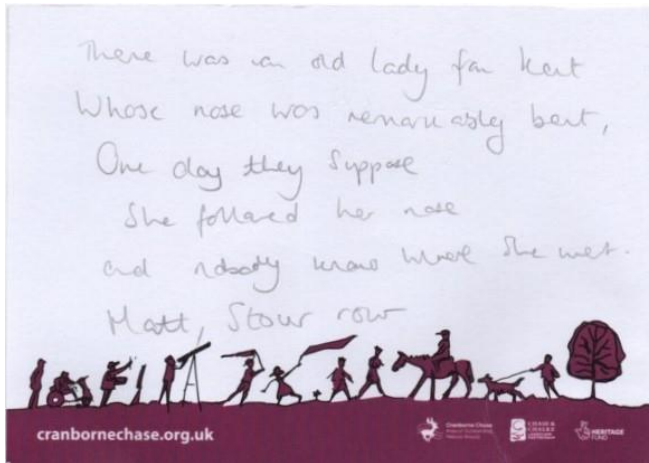 There was an old lady from Kent
Whose nose was remarkably bent,
One day they suppose
She followed her nose
and nobody know where she wet.
Matt, Stour row
cranbornechase.org.uk
Cranborne Chase
CHASE & CHALKE
HERITAGE FUND